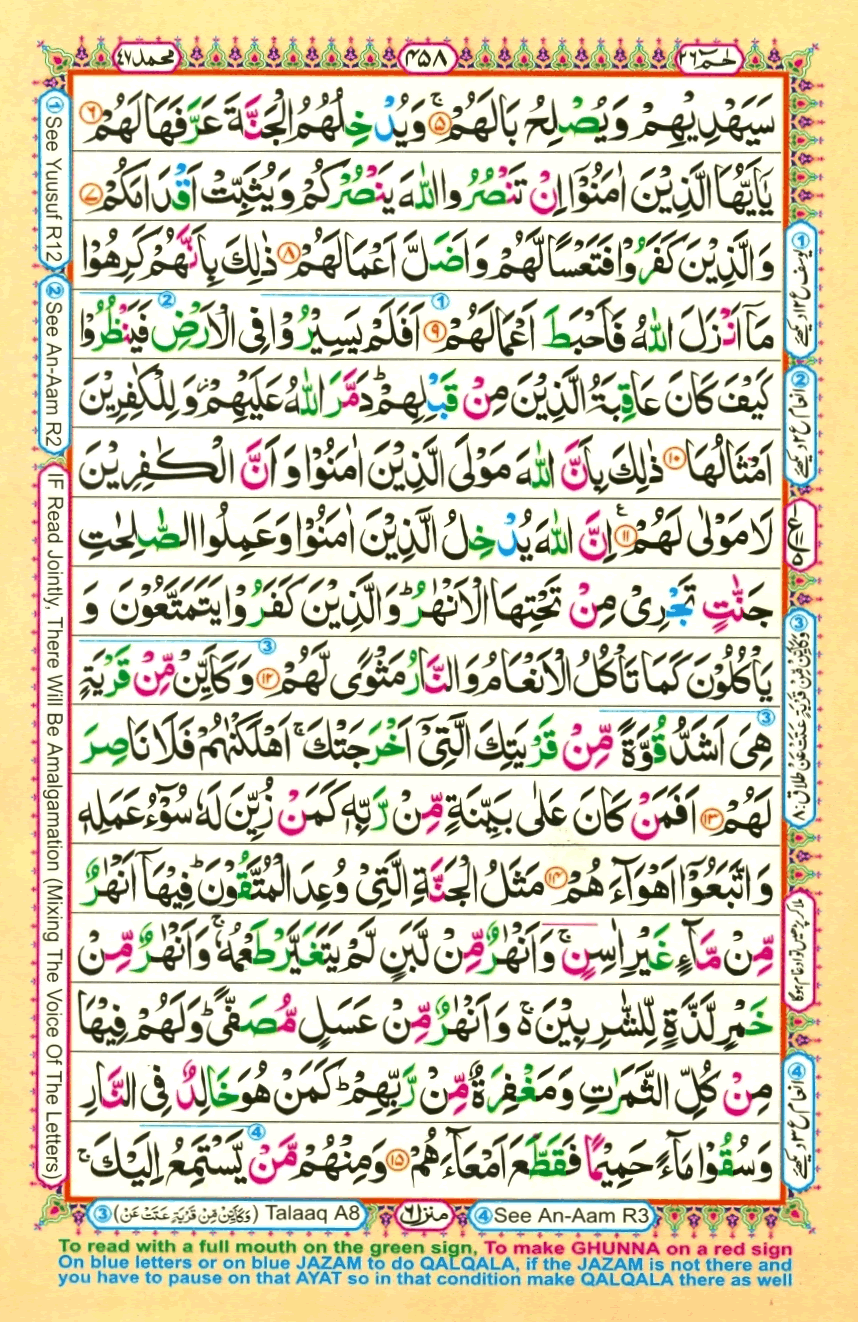 حٰمٓ ٢٦
٤٥٨
محمد ٤٧
سَيَهْدِيْهِمْ وَيُصْلِحُ بَالَهُمْ ۚ ﴿۵﴾ وَيُدْخِلُهُمُ الْجَنَّةَ عَرَّفَهَا لَهُمْ ﴿۶﴾
يٰٓاَيُّهَا الَّذِيْنَ اٰمَنُوْٓا اِنْ تَنْصُرُوا اللّٰهَ يَنْصُرْكُمْ وَيُثَبِّتْ اَقْدَامَكُمْ ﴿۷﴾
وَالَّذِيْنَ كَفَرُوْا فَتَعْسًا لَّهُمْ وَاَضَلَّ اَعْمَالَهُمْ ﴿۸﴾ ذٰلِكَ بِاَنَّهُمْ كَرِهُوْا
مَآ اَنْزَلَ اللّٰهُ فَاَحْبَطَ اَعْمَالَهُمْ ﴿۹﴾ اَفَلَمْ يَسِيْرُوْا فِى الْاَرْضِ فَيَنْظُرُوْا
كَيْفَ كَانَ عَاقِبَةُ الَّذِيْنَ مِنْ قَبْلِهِمْ ؕ دَمَّرَ اللّٰهُ عَلَيْهِمْ ؗ وَلِلْكٰفِرِيْنَ
اَمْثَالُهَا ﴿۱۰﴾ ذٰلِكَ بِاَنَّ اللّٰهَ مَوْلَى الَّذِيْنَ اٰمَنُوْا وَاَنَّ الْكٰفِرِيْنَ
لَا مَوْلٰى لَهُمْ ﴿۱۱﴾ اِنَّ اللّٰهَ يُدْخِلُ الَّذِيْنَ اٰمَنُوْا وَعَمِلُوا الصّٰلِحٰتِ
جَنّٰتٍ تَجْرِىْ مِنْ تَحْتِهَا الْاَنْهٰرُ ؕ وَالَّذِيْنَ كَفَرُوْا يَتَمَتَّعُوْنَ وَ
يَاْكُلُوْنَ كَمَا تَاْكُلُ الْاَنْعَامُ وَالنَّارُ مَثْوًى لَّهُمْ ﴿۱۲﴾ وَكَاَيِّنْ مِّنْ قَرْيَةٍ
هِىَ اَشَدُّ قُوَّةً مِّنْ قَرْيَتِكَ الَّتِىْٓ اَخْرَجَتْكَ ۚ اَهْلَكْنٰهُمْ فَلَا نَاصِرَ
لَهُمْ ﴿۱۳﴾ اَفَمَنْ كَانَ عَلٰى بَيِّنَةٍ مِّنْ رَّبِّهٖ كَمَنْ زُيِّنَ لَهٗ سُوْٓءُ عَمَلِهٖ
وَاتَّبَعُوْٓا اَهْوَآءَهُمْ ﴿۱۴﴾ مَثَلُ الْجَنَّةِ الَّتِىْ وُعِدَ الْمُتَّقُوْنَ ؕ فِيْهَآ اَنْهٰرٌ
مِّنْ مَّآءٍ غَيْرِ اٰسِنٍ ۚ وَاَنْهٰرٌ مِّنْ لَّبَنٍ لَّمْ يَتَغَيَّرْ طَعْمُهٗ ۚ وَاَنْهٰرٌ مِّنْ
خَمْرٍ لَّذَّةٍ لِّلشّٰرِبِيْنَ ۬ۚ وَاَنْهٰرٌ مِّنْ عَسَلٍ مُّصَفًّى ؕ وَلَهُمْ فِيْهَا
مِنْ كُلِّ الثَّمَرٰتِ وَمَغْفِرَةٌ مِّنْ رَّبِّهِمْ ؕ كَمَنْ هُوَ خَالِدٌ فِى النَّارِ
وَسُقُوْا مَآءً حَمِيْمًا فَقَطَّعَ اَمْعَآءَهُمْ ﴿۱۵﴾ وَمِنْهُمْ مَّنْ يَّسْتَمِعُ اِلَيْكَ ۚ
① See Yuusuf R12
② See An-Aam R2
IF Read Jointly, There Will Be Amalgamation (Mixing The Voice Of The Letters)
① یوسف ع ۱۲ دیکھئے
② انعام ع ۲ دیکھئے
③ وَكَاَيِّنْ مِّنْ قَرْيَةٍ عَتَتْ عَنْ طلاق ۸
ملا کر پڑھیں تو ادغام ہوگا
④ انعام ع ۳ دیکھئے
③ (وَكَاَيِّنْ مِّنْ قَرْيَةٍ عَتَتْ عَنْ) Talaaq A8
منزل ٦
④ See An-Aam R3
To read with a full mouth on the green sign, To make GHUNNA on a red sign
On blue letters or on blue JAZAM to do QALQALA, if the JAZAM is not there and
you have to pause on that AYAT so in that condition make QALQALA there as well